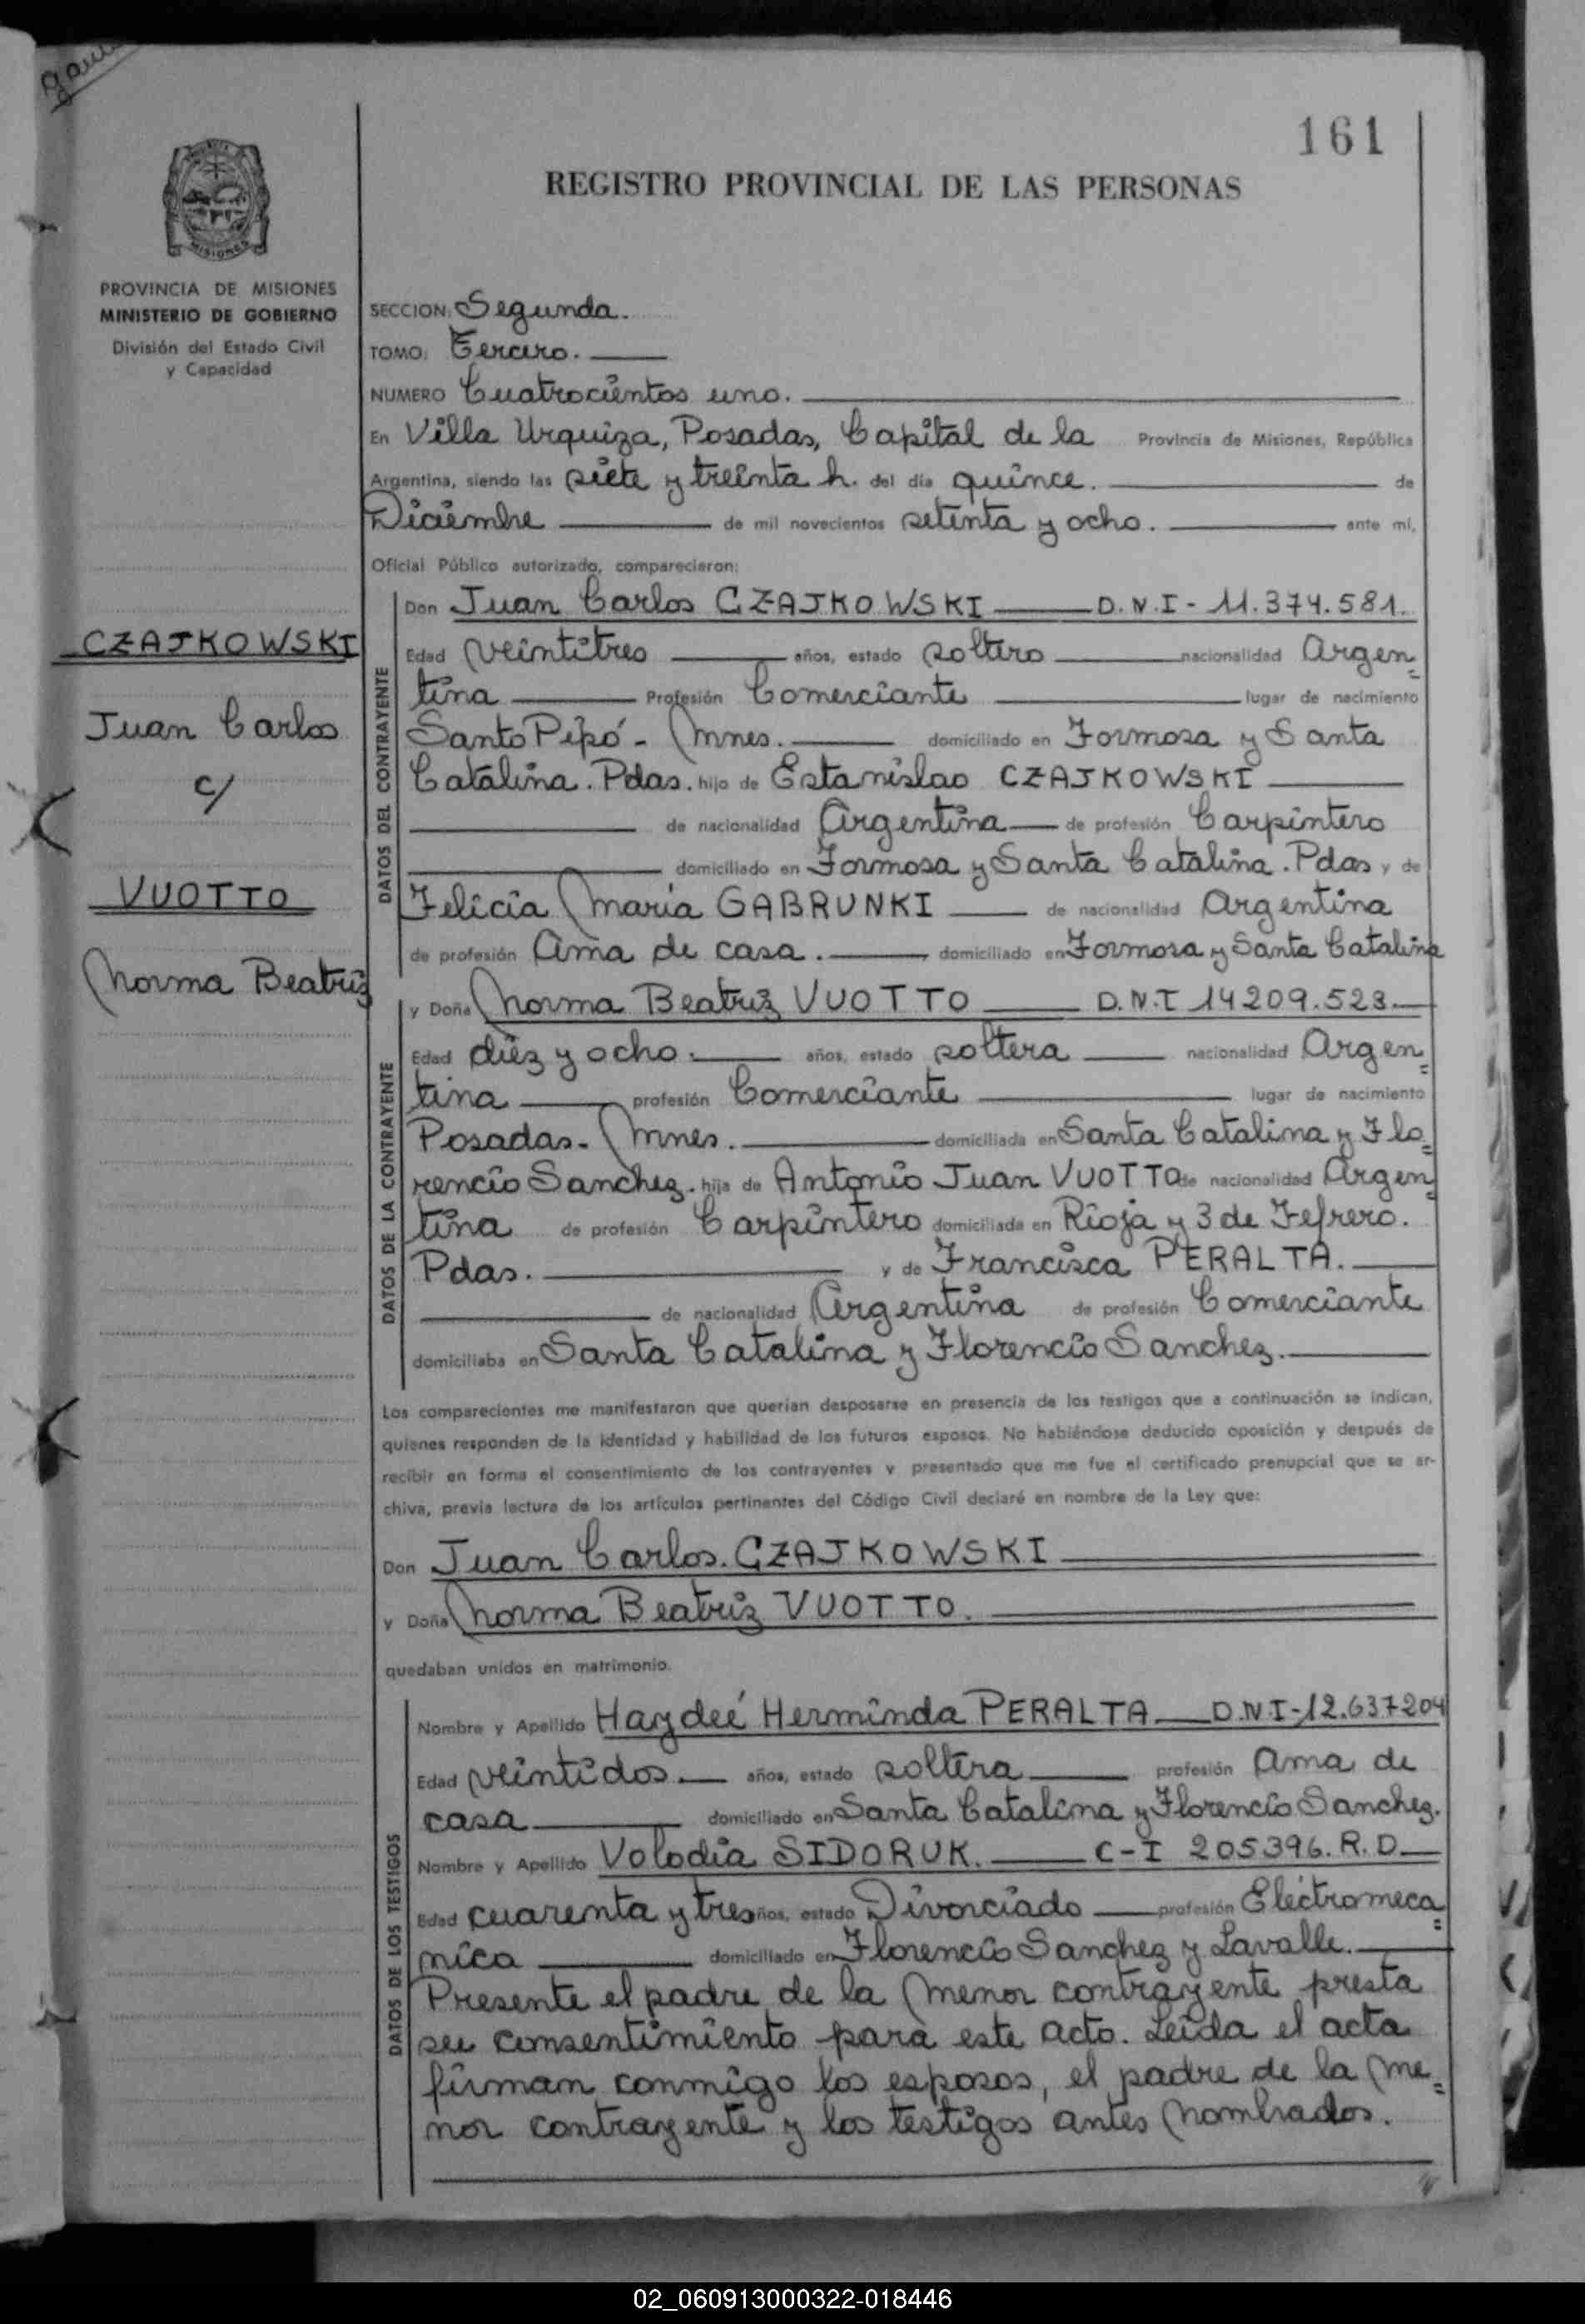 161
REGISTRO PROVINCIAL DE LAS PERSONAS
MISIONES
PROVINCIA DE MISIONES
MINISTERIO DE GOBIERNO
División del Estado Civil
y Capacidad
CZAJKOWSKI
Juan Carlos
c/
VUOTTO
Norma Beatriz
SECCION: Segunda.
TOMO: Tercero.
NUMERO Cuatrocientos uno.
En Villa Urquiza, Posadas, Capital de la Provincia de Misiones, República
Argentina, siendo las siete y treinta h. del día quince. de
Diciembre de mil novecientos setenta y ocho. ante mí,
Oficial Público autorizado, comparecieron:
DATOS DEL CONTRAYENTE
Don Juan Carlos CZAJKOWSKI D.N.I - 11.374.581.
Edad veintitres años, estado soltero nacionalidad Argen=
tina Profesión Comerciante lugar de nacimiento
Santo Pipó - Mnes. domiciliado en Formosa y Santa
Catalina. Pdas. hijo de Estanislao CZAJKOWSKI
de nacionalidad Argentina de profesión Carpintero
domiciliado en Formosa y Santa Catalina. Pdas y de
Felicia Maria GABRUNKI de nacionalidad Argentina
de profesión Ama de casa. domiciliado en Formosa y Santa Catalina
DATOS DE LA CONTRAYENTE
y Doña Norma Beatriz VUOTTO D.N.I 14209.523.
Edad diez y ocho. años, estado soltera nacionalidad Argen=
tina profesión Comerciante lugar de nacimiento
Posadas - Mnes. domiciliada en Santa Catalina y Flo=
rencio Sanchez. hija de Antonio Juan VUOTTO de nacionalidad Argen=
tina de profesión Carpintero domiciliada en Rioja y 3 de Fefrero.
Pdas. y de Francisca PERALTA.
de nacionalidad Argentina de profesión Comerciante
domiciliaba en Santa Catalina y Florencio Sanchez.
Los comparecientes me manifestaron que querían desposarse en presencia de los testigos que a continuación se indican,
quienes responden de la identidad y habilidad de los futuros esposos. No habiéndose deducido oposición y después de
recibir en forma el consentimiento de los contrayentes y presentado que me fue el certificado prenupcial que se ar-
chiva, previa lectura de los artículos pertinentes del Código Civil declaré en nombre de la Ley que:
Don Juan Carlos. CZAJKOWSKI
y Doña Norma Beatriz VUOTTO.
quedaban unidos en matrimonio.
DATOS DE LOS TESTIGOS
Nombre y Apellido Haydeé Herminda PERALTA D.N.I - 12.637204
Edad veintidos. años, estado soltera profesión Ama de
casa domiciliado en Santa Catalina y Florencio Sanchez.
Nombre y Apellido Volodia SIDORUK. C-I 205396. R.D.
Edad cuarenta y tres años, estado Divorciado profesión Eléctromeca=
nico domiciliado en Florencio Sanchez y Lavalle.
Presente el padre de la menor contrayente presta
su consentimiento para este acto. Leida el acta
firman conmigo los esposos, el padre de la me=
nor contrayente y los testigos antes nombrados.
02_060913000322-018446